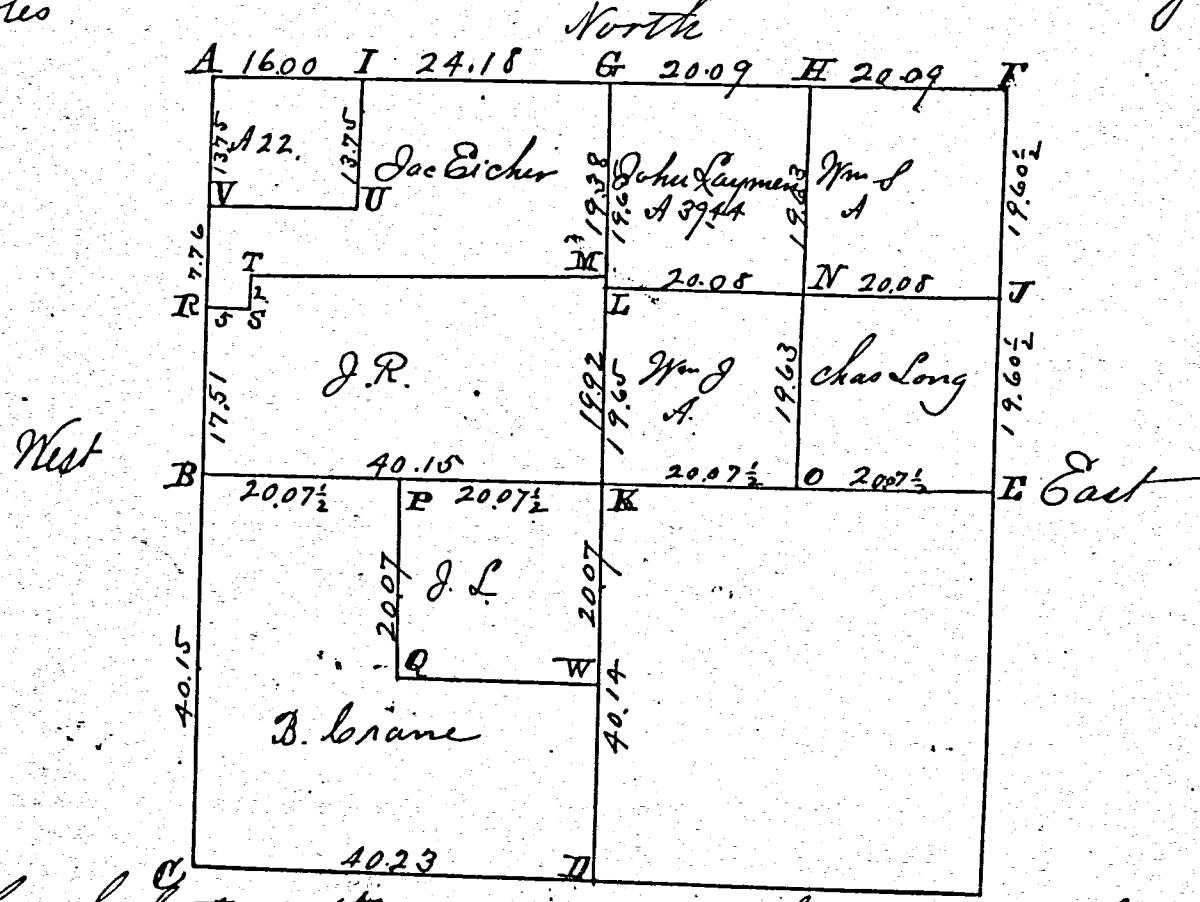 North
A 16.00 I 24.18 G 20.09 H 20.09 F
13.75 A 22. 13.75 Jac Eicher 19.38 19.65 John Laymen 19.63 Wm S 19.60½
A 39.44 A
V U
7.76 T M 20.08 N 20.08 J
R 5 S 2 L
17.51 J.R. 19.92 19.65 Wm J 19.63 Chas Long 19.60½
A.
West
B 40.15 20.07½ O 20.07½ E East
20.07½ P 20.07½ K
20.07 J. L 20.07
Q W
40.15 B. Crane 40.14
C 40.23 D